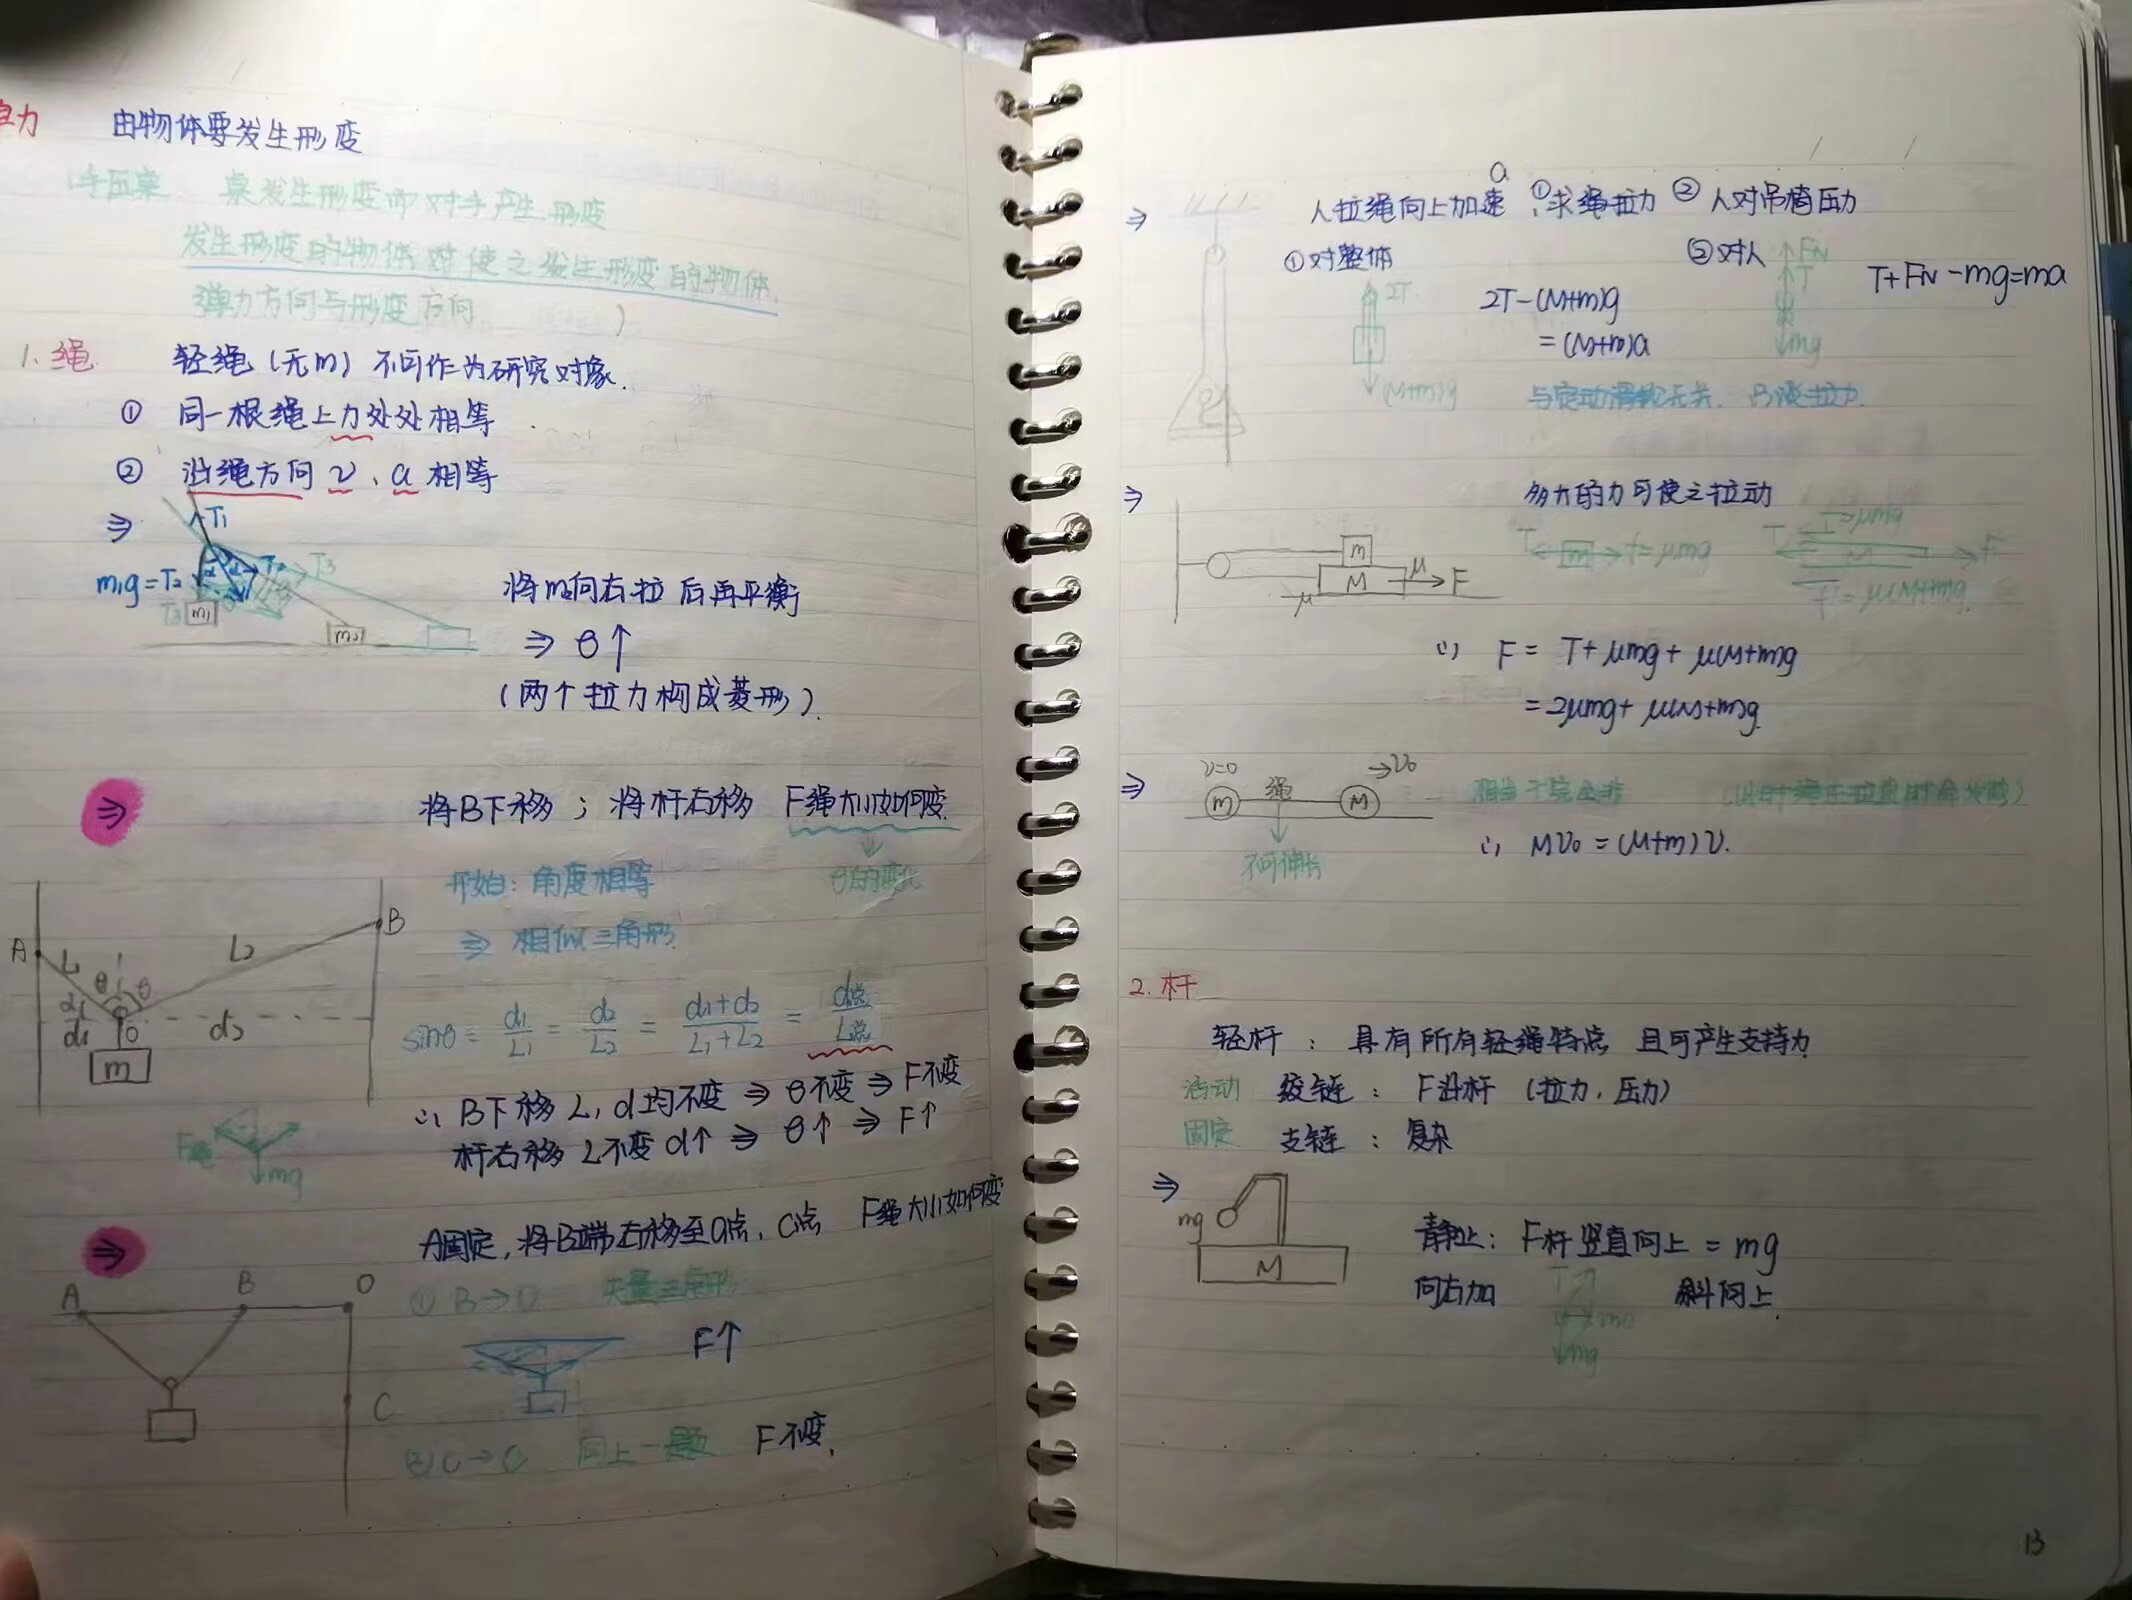 力 由物体要发生形变
手压桌 桌发生形变而对手产生形变
发生形变的物体对使之发生形变的物体
弹力方向与形变方向 )
1. 绳 轻绳(无m) 不可作为研究对象.
① 同一根绳上力处处相等
② 沿绳方向 v、a 相等
⇒ T₁
m₁g=T₂ T₃
m₁ m₂
将m向右拉后再平衡
⇒ θ↑
(两个拉力构成菱形).
⇒ 将B下移;将杆右移 F绳大小如何变.
↓
开始:角度相等 θ的变化
⇒ 相似三角形.
A B L₁ L₂ θ θ α d₁ O d₂ m
sinθ = d₁/L₁ = d₂/L₂ = (d₁+d₂)/(L₁+L₂) = d总/L总
∴ B下移 L,d均不变 ⇒ θ不变 ⇒ F不变
杆右移 L不变 d↑ ⇒ θ↑ ⇒ F↑
F绳 mg
⇒ A固定,将B端右移至O点、C点 F绳大小如何变
A B O C
① B→O 矢量三角形
F↑
② O→C 同上一题 F不变.
⇒ 人拉绳向上加速 a ①求绳拉力 ②人对吊椅压力
①对整体 ②对人
2T (M+m)g
2T-(M+m)g
=(M+m)a
FN T mg
T+FN-mg=ma
与定动滑轮无关. 只谈拉力.
⇒ 多大的力可使之拉动
m M μ F μ
T m f=μmg
T f=μmg M F f'=μ(M+m)g
∴ F = T+μmg+μ(M+m)g
=2μmg+μ(M+m)g
⇒ v=0 绳 →v₀
m M
不可伸长
∴ Mv₀=(M+m)v.
2. 杆
轻杆 : 具有所有轻绳特点 且可产生支持力
活动 铰链 : F沿杆 (拉力,压力)
固定 支链 : 复杂
⇒ mg M
静止: F杆竖直向上 = mg
向右加 T ma mg 斜向上.
13